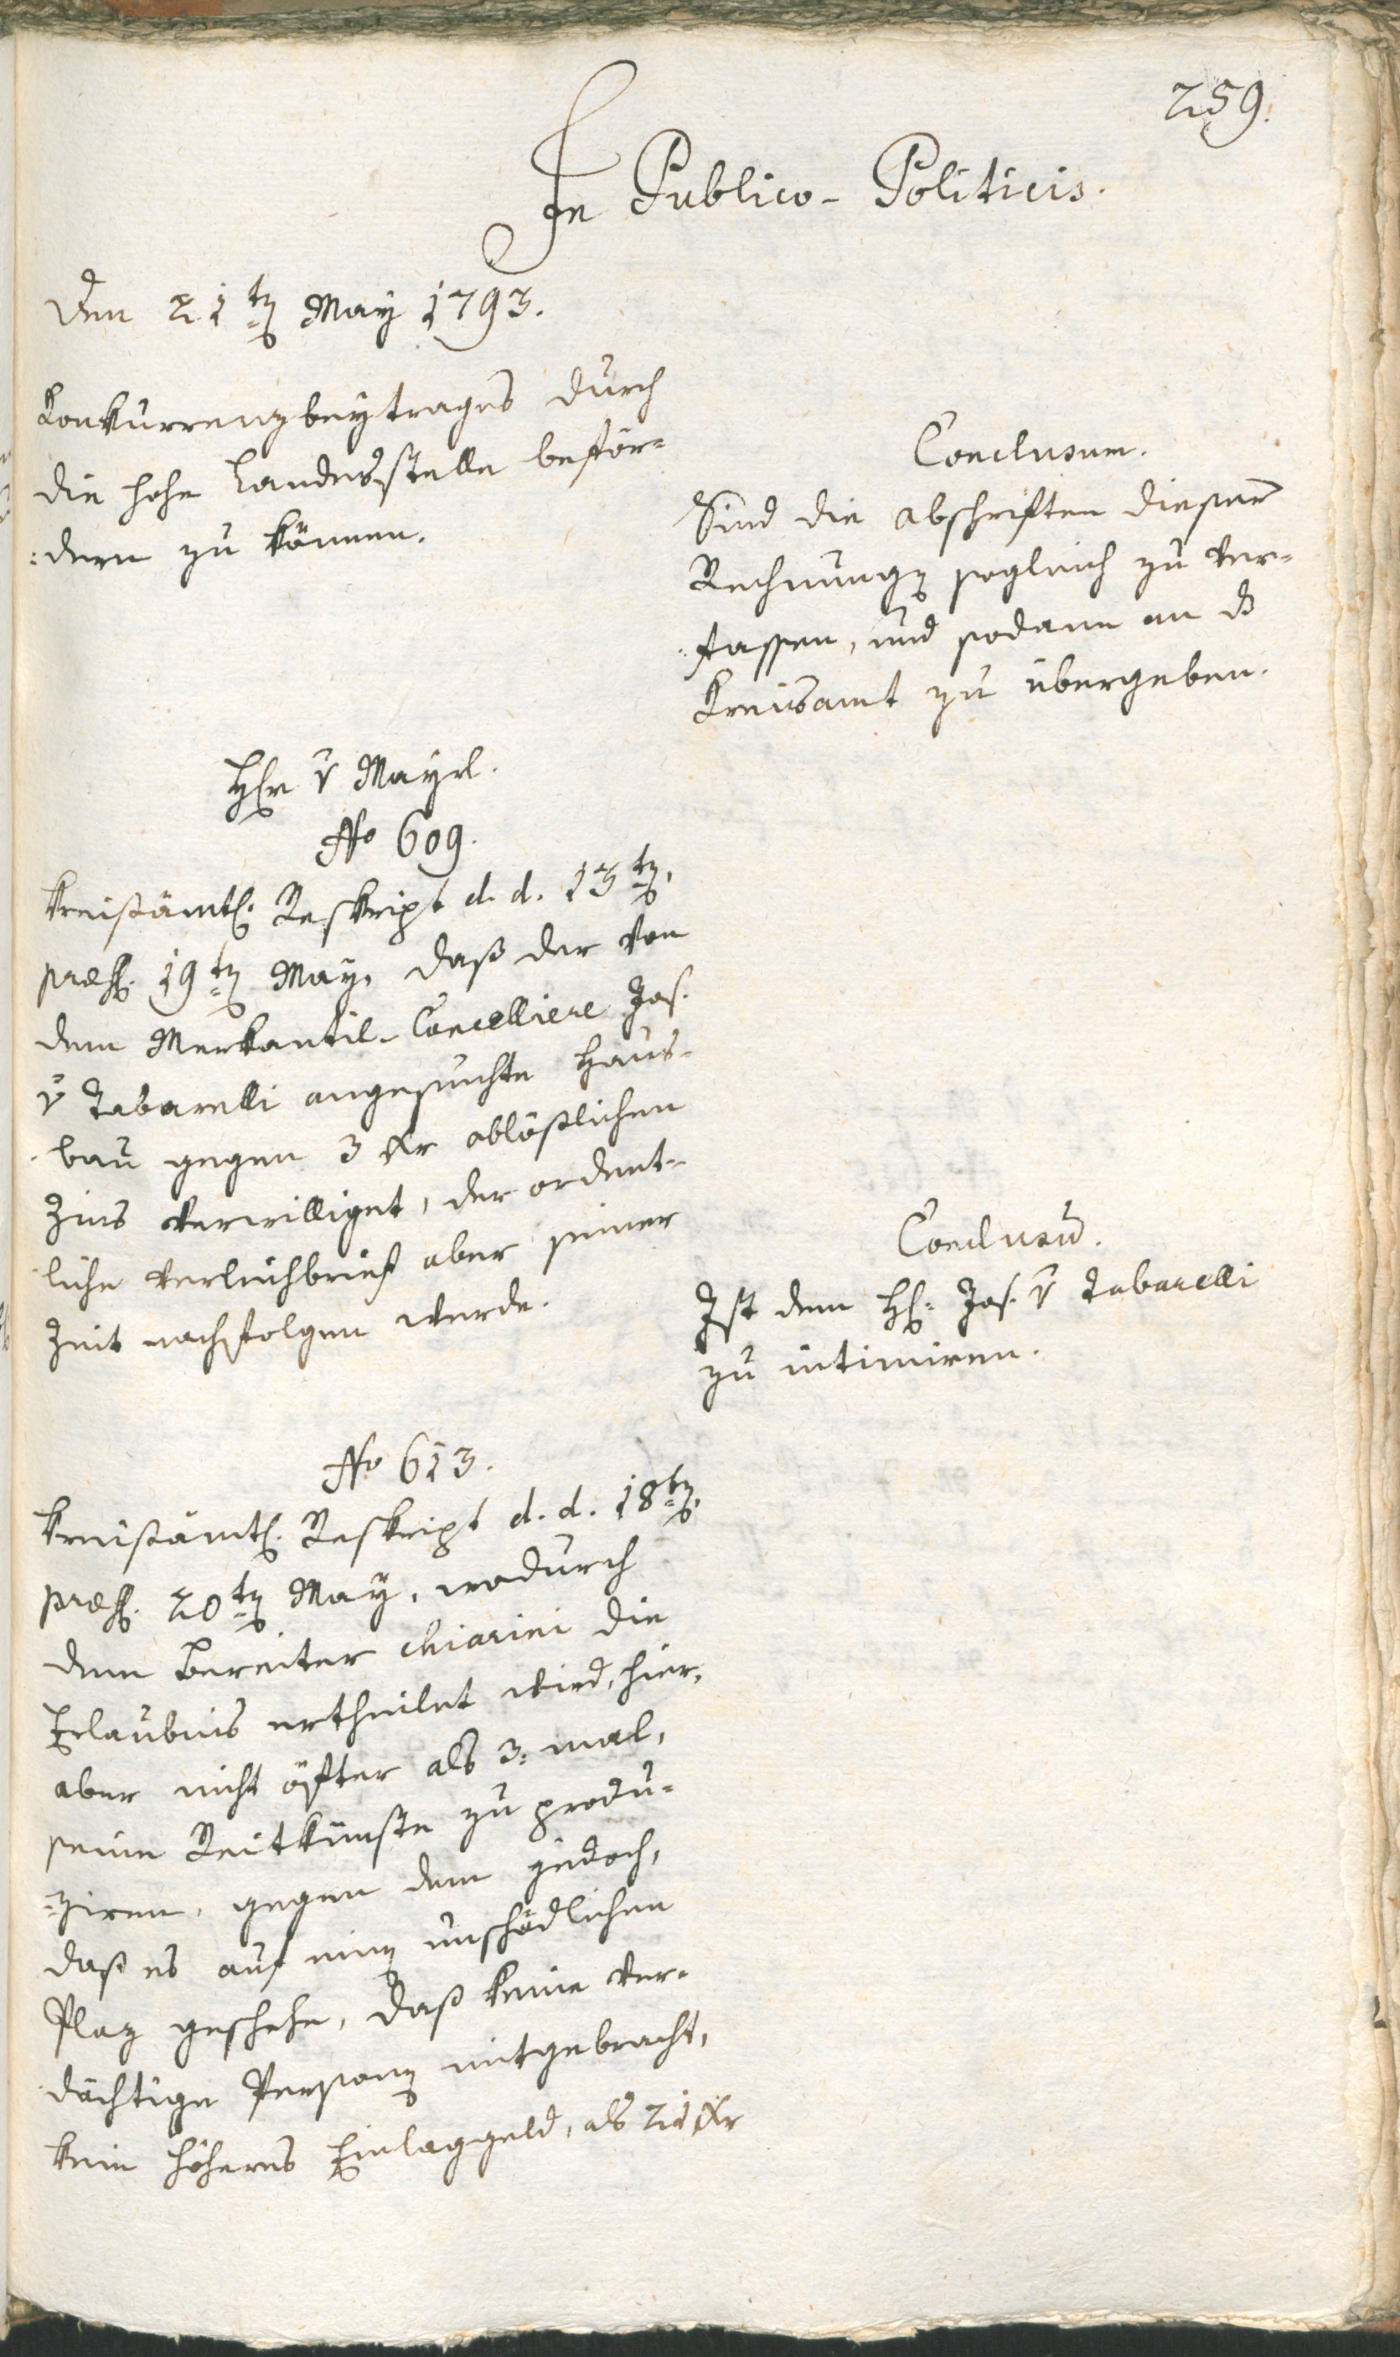 259.
In Publico-Politicis.
Den 21ten May 1793.
Konkurrenzbeytrages durch
die hohe Landesstelle beför-
:dern zu können.
Conclusum.
Sind die abschriften dieser
Rechnungen sogleich zu ver-
fassen, und sodann an dz
Kreisamt zu übergeben.
Hhr v Mayrl.
No 609.
kreisämtl. Reskript d. d. 13ten,
præs. 19ten May, daß der von
dem Merkantil-Cancelliere Jos.
v Tabarelli angesuchte Haus-
bau gegen 3 Xr ablößlichen
Zins verwilliget, der ordent-
liche verleichbrief aber seiner
Zeit nachfolgen werde.
Conclusũ.
Ist dem H: Jos. v Tabarelli
zu intimiren.
No 613.
kreisämtl. Reskript d. d. 18ten,
præs. 20ten May, wodurch
dem Bereiter Chiarini die
Erlaubnis ertheilet wird, hier,
aber nicht öfter als 3: mal,
seine Reitkünste zu produ-
:ziren, gegen dem jedoch,
daß es auf einen unschädlichen
Plaz geschehe, daß keine ver-
dächtige Personen mitgebracht,
kein höheres Einlaggeld, als 21 Xr